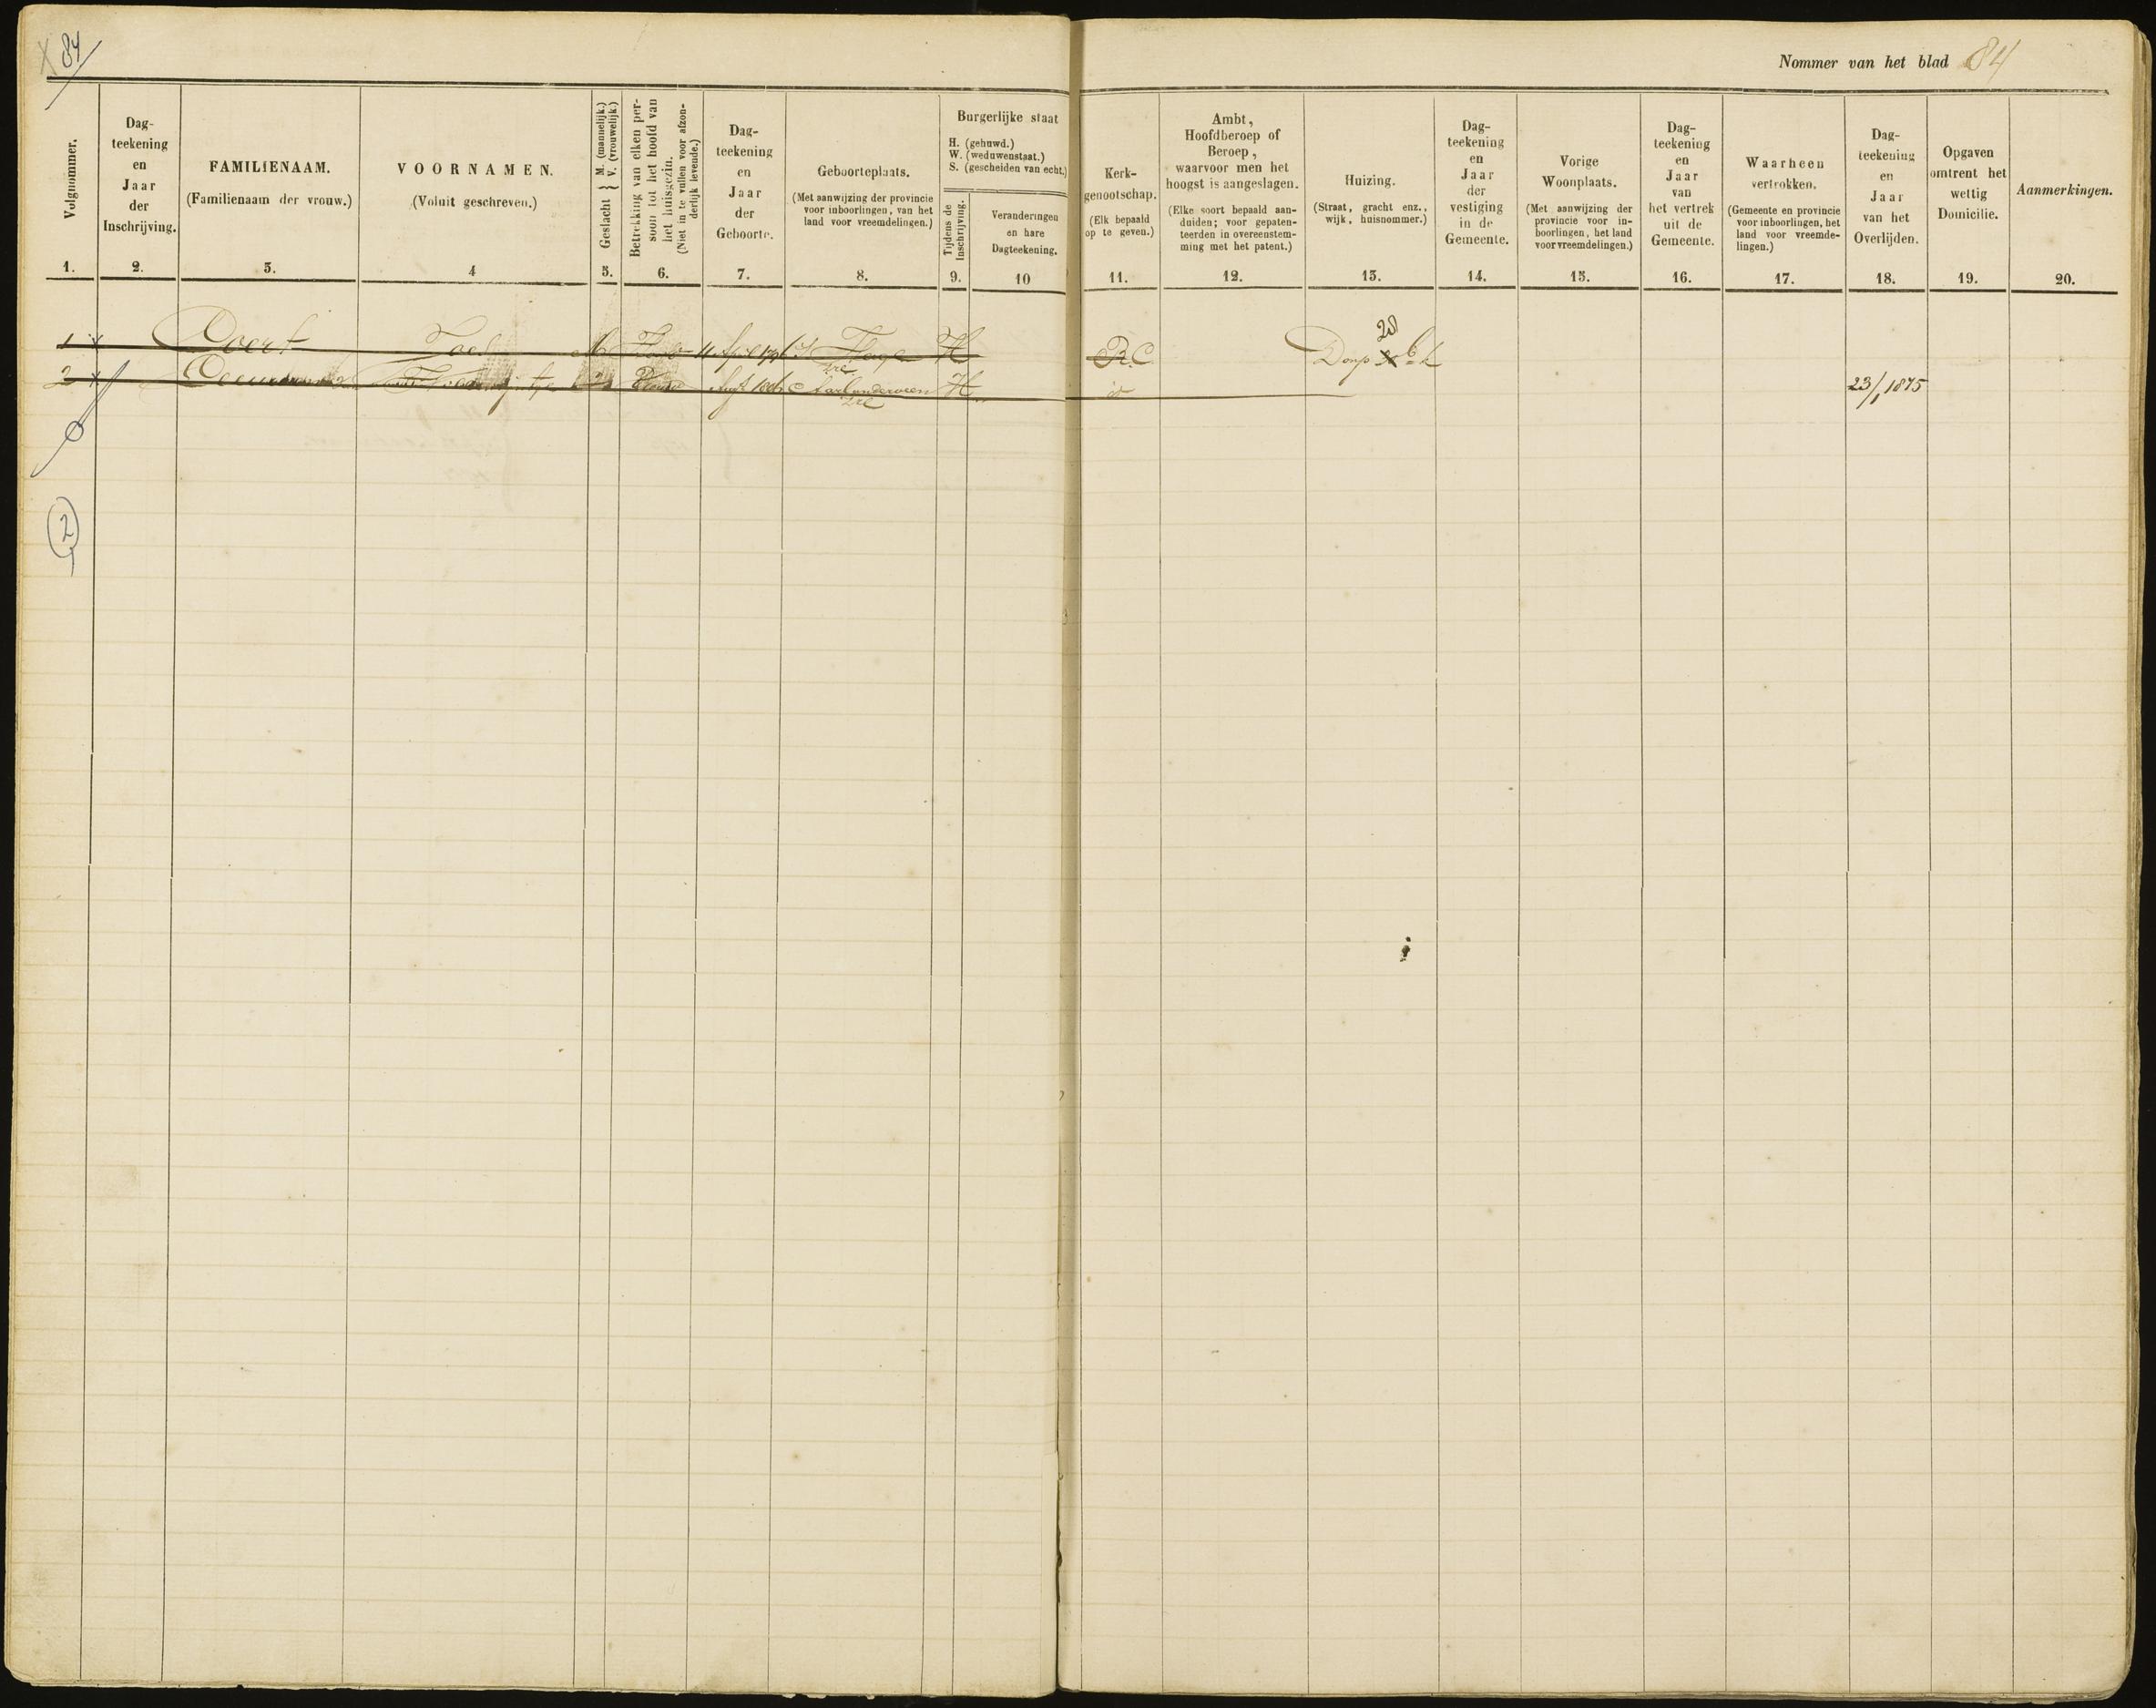 84
Nommer van het blad 84
Volgnommer.
1.
Dag-
teekening
en
Jaar
der
Inschrijving.
2.
FAMILIENAAM.
(Familienaam der vrouw.)
3.
VOORNAMEN.
(Voluit geschreven.)
4
Geslacht } M. (mannelijk.)
V. (vrouwelijk.)
5.
Betrekking van elken per-
soon tot het hoofd van
het huisgezin.
(Niet in te vullen voor afzon-
derlijk levende.)
6.
Dag-
teekening
en
Jaar
der
Geboorte.
7.
Geboorteplaats.
(Met aanwijzing der provincie
voor inboorlingen, van het
land voor vreemdelingen.)
8.
Burgerlijke staat
H. (gehuwd.)
W. (weduwenstaat.)
S. (gescheiden van echt.)
Tijdens de
Inschrijving.
9.
Veranderingen
en hare
Dagteekening.
10
Kerk-
genootschap.
(Elk bepaald
op te geven.)
11.
Ambt,
Hoofdberoep of
Beroep,
waarvoor men het
hoogst is aangeslagen.
(Elke soort bepaald aan-
duiden; voor gepaten-
teerden in overeenstem-
ming met het patent.)
12.
Huizing.
(Straat, gracht enz.,
wijk, huisnommer.)
13.
Dag-
teekening
en
Jaar
der
vestiging
in de
Gemeente.
14.
Vorige
Woonplaats.
(Met aanwijzing der
provincie voor in-
boorlingen, het land
voor vreemdelingen.)
15.
Dag-
teekening
en
Jaar
van
het vertrek
uit de
Gemeente.
16.
Waarheen
vertrokken.
(Gemeente en provincie
voor inboorlingen, het
land voor vreemde-
lingen.)
17.
Dag-
teekening
en
Jaar
van het
Overlijden.
18.
Opgaven
omtrent het
wettig
Domicilie.
19.
Aanmerkingen.
20.
1 M April H R.C. Dorp 28
2 Aarlanderveen H id 23/1 1875
2